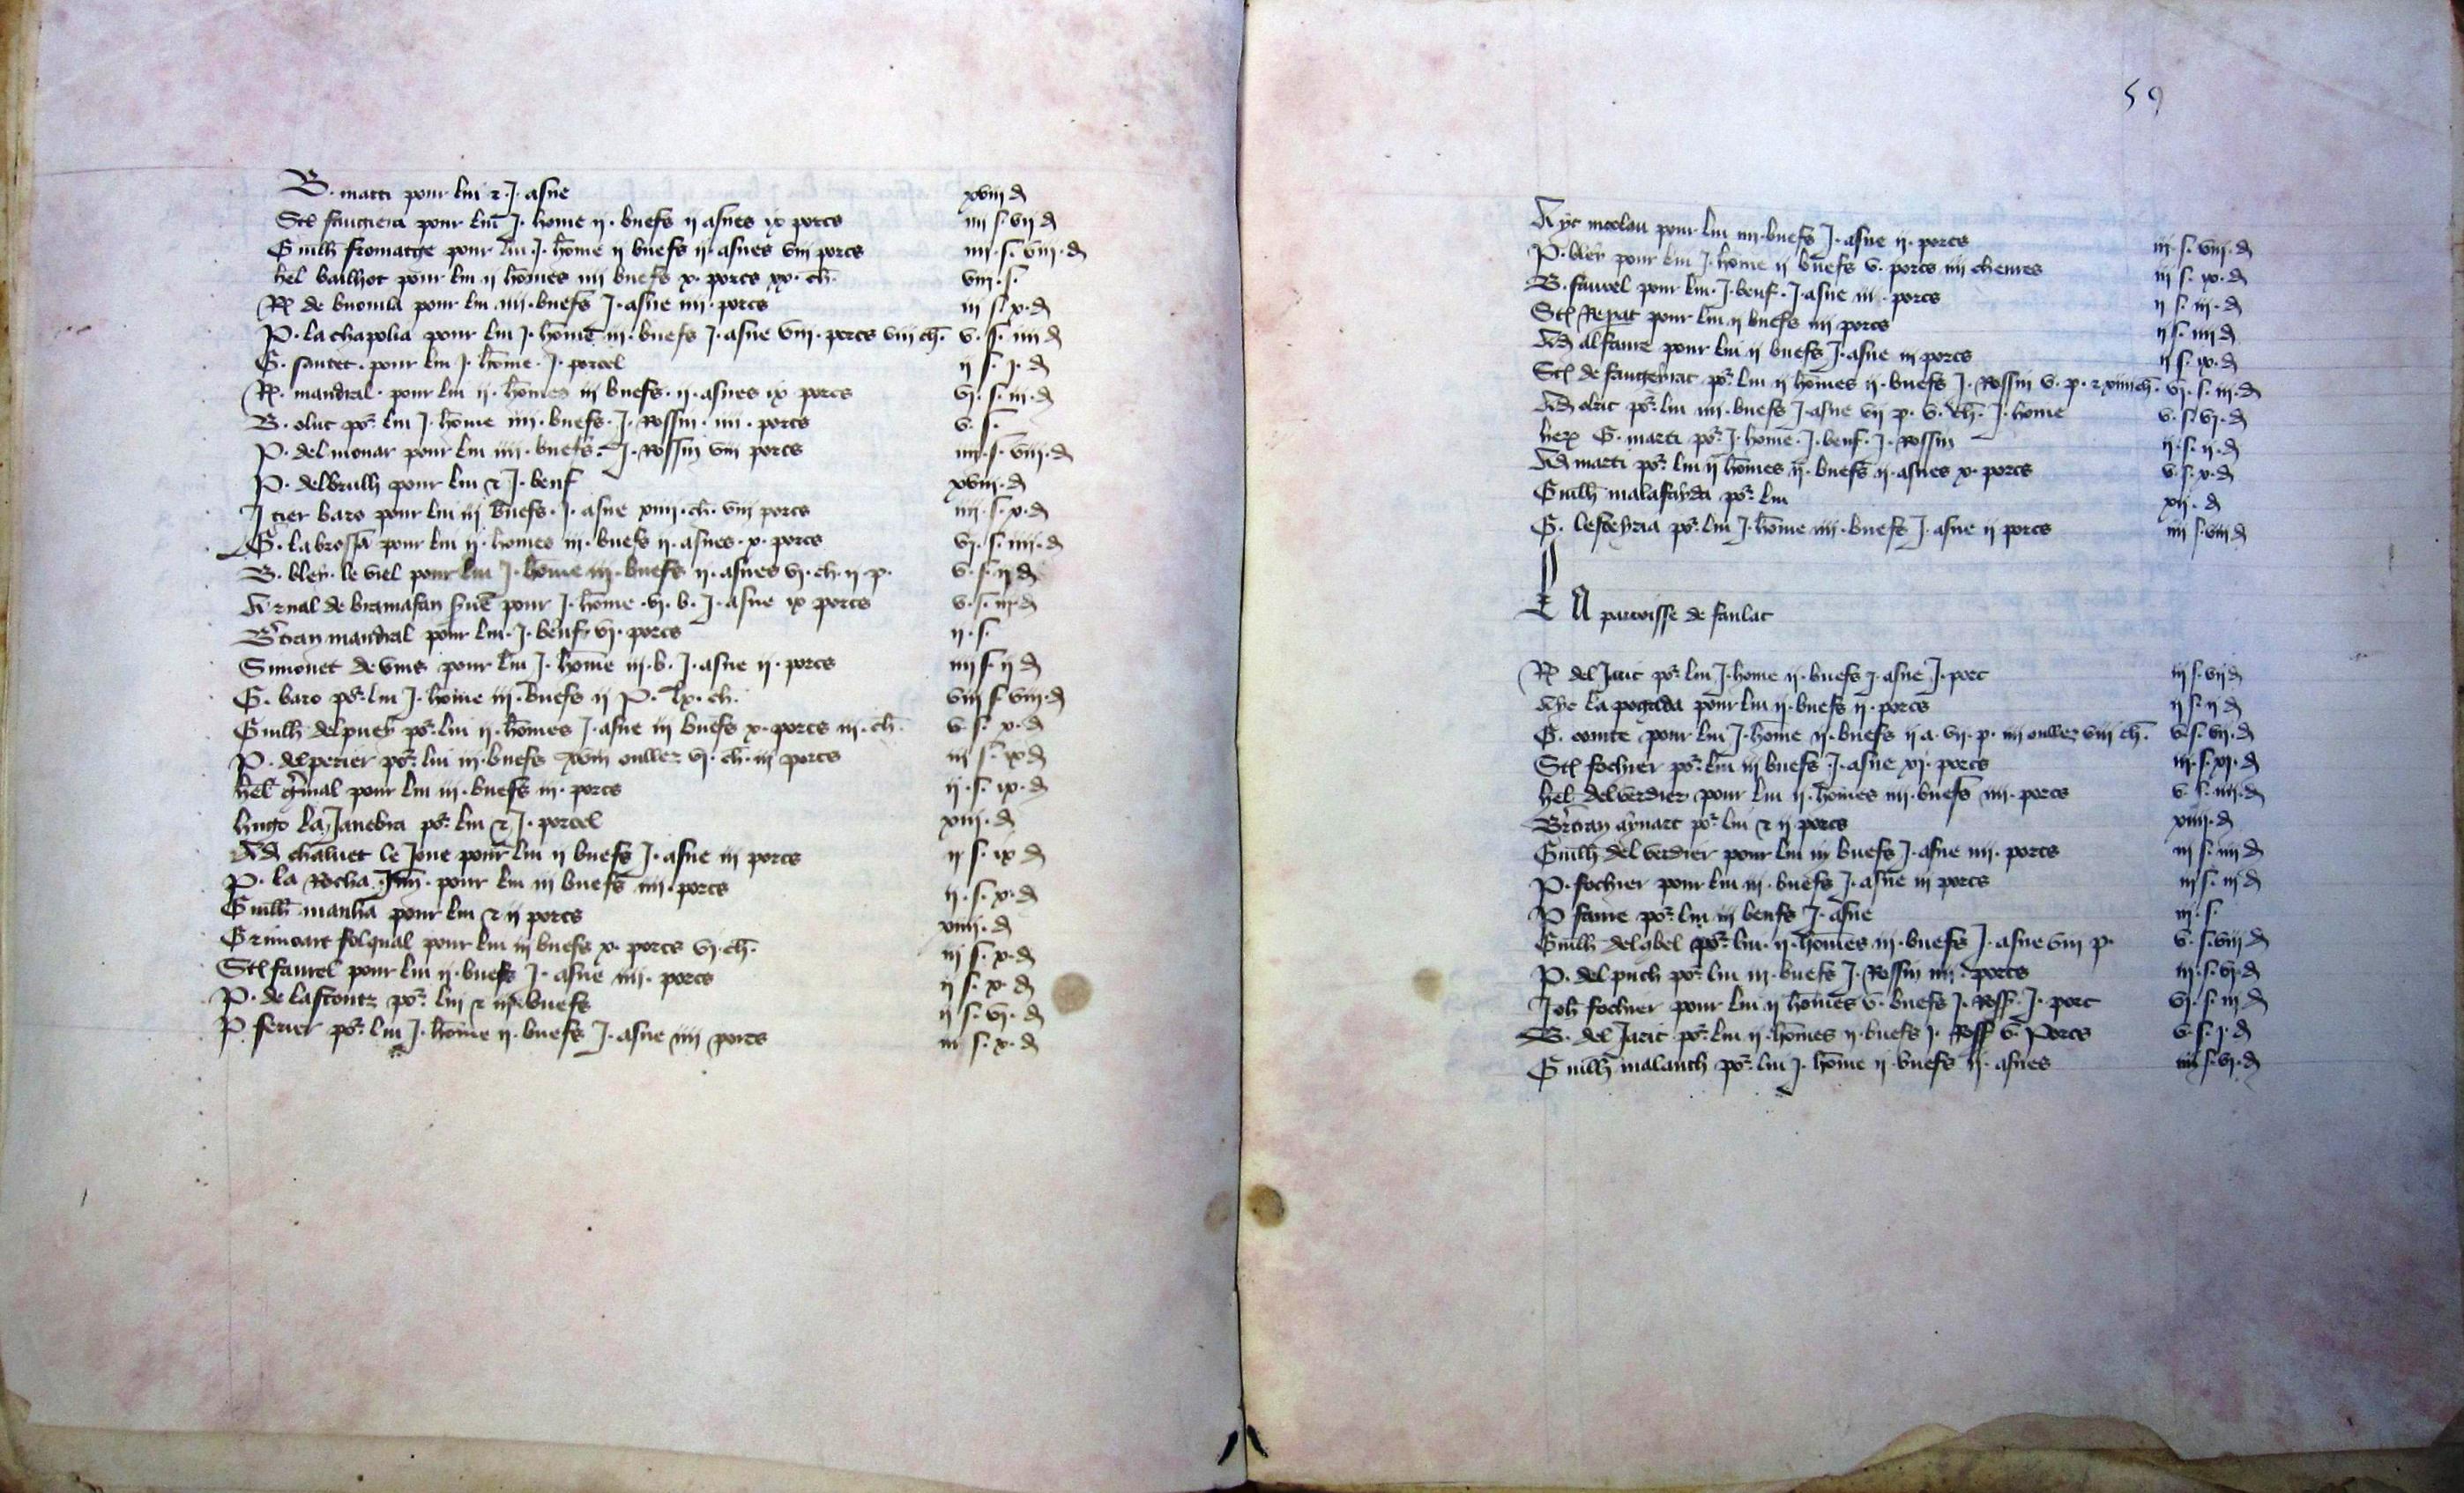 B. marti pour lui ⁊ .J. asne xviii d
Stē faugiera pour lui J. home ii. buefs ii asnes ix porcs iiii s. vii d
Guilh fromatge pour lui .J. home ii buefs ii. asnes viii porcs iiii. s. viii. d
hel balhot pour lui ii homes iiii buefs x. porcs xx. ch. viii. s.
R. de buonla pour lui .iiii. buefs J. asne iiii. porcs iii s. x. d
P. la chapolia pour lui J. home iii. buefs J. asne viii. porcs viii ch. v. s. iiii d
G. santet. pour lui J. home. J. porcel ii s. j. d
R. mandral. pour lui ii. homes iii buefs. ii. asnes ix porcs vj. s. iii. d
B. oluc por. lui J. home iiii. buefs. J. Rossin. iiii. porcs v. s.
P. del monar pour lui iiii. buefs. J. Rossin viii porcs iiii. s. viii. d
P. delbrulh pour lui ⁊ J. beuf xviii. d
Jtier baro pour lui iii buefs. J. asne xiiii. ch. viii porcs iiii. s. x. d
G. labrossa pour lui ii. homes iii. buefs ii. asnes. x. porcs vj. s. iiii. d
B. bley. le viel pour lui J. home iii. buefs ii. asnes vj. ch. ii p. v. s. ii d
Arnal de bramafan pour J. home. vj. b. J. asne ix porcs v. s. iii. d
Bertran mandral pour lui. J. beuf vj. porcs ii. s.
Simonet de vins pour lui J. home iii. b. J. asne ii. porcs iiii s. ii d
G. baro por. lui J. home iii. buefs ii P. lx. ch. viii s. viii. d
Guilh delpuey por. lui ii. homes J. asne iii buefs x. porcs iii. ch. v. s. x. d
P. delperier por. lui iii. buefs xviii ouller vj. ch. iii porcs iii s. ix d
hel gmal pour lui iii. buefs iii. porcs ii. s. ix. d
hugo la Janebra por. lui ⁊ J. porcel xiii. d
Ad chaluet le Jone pour lui ii buefs J. asne iii porcs ii s. ix d
P. la Rocha pour lui iii buefs iiii. porcs ii. s. x. d
Guilh manha pour lui ⁊ ii porcs xiiii. d
Grimoart folqual pour lui iii buefs x. porcs vj. ch. iii s. x. d
Stē faurel pour lui ii. buefs J. asne iiii. porcs ii s. x. d
P. de lastoutz por. lui ⁊ iii. buefs ii s. vj. d
P. ferier por. lui J. home ii. buefs J. asne iiii porcs iii s. x. d
59
Ayc nicolau pour lui iiii. buefs J. asne ii. porcs iii. s. viii. d
P. bley pour lui J. home ii buefs v. porcs iiii chenres iii s. ix. d
B. faurel pour lui. J. beuf. J. asne iii. porcs ii s. iii. d
Stē Repat pour lui ii buefs iiii porcs ii s. iiii d
Ad alfaure pour lui ii buefs J. asne iii porcs ii s. ix. d
Stē de faugeyrac por. lui ii homes ii. buefs J. Rossin v. p. ⁊ xiiii ch. vj. s. iii. d
Ad oluc por. lui iiii. buefs J asne vii p. v. ch. J. home v. s. vj. d
her G. marti por. J. home. J. beuf. J. Rossin ii. s. ii. d
Ad marti por. lui ii homes ii. buefs ii. asnes x. porcs v. s. x. d
Guilh malafayda por. lui xii. d
G. lesteyria por. lui J. home iiii. buefs J. asne ii porcs iiii s. viii d
LA parroisse de fanlac
R. del Jaric por. lui J. home ii. buefs J. asne J. porc iii s. vii d
Aye la pogada pour lui ii. buefs ii. porcs ii s. ii d
G. comte pour lui J. home ii. buefs ii a. vii. p. iiii ouller viii ch. v. s. vii. d
Stē fochier por. lui iii buefs .J. asne xj. porcs iii. s. xj. d
hel. delverdier pour lui ii. homes iiii. buefs iiii. porcs v. s. iiii. d
Bertran aynart por. lui ⁊ ii porcs xiiii. d
Guilh del verdier pour lui iii buefs J. asne iiii. porcs iii s. iiii d
P. fochier pour lui iii. buefs J. asne iii porcs iii s. iii. d
P faure por. lui iii beufs J. asne iii. s.
Guilh delgbel por. lui. ii. homes iii. buefs J. asne viii p. v. s. viii d
P. del puch por. lui iii. buefs J. Rossin iiii. porcs iii. s. vj. d
Joh fochier pour lui ii homes v. buefs J. Ross. J. porc vj. s. iii d
B. del Jaric por. lui ii. homes ii. buefs J. Ross v. Porcs v. s. j. d
Guilh malauch por. lui J. home ii. buefs ii. asnes iiii s. vj. d